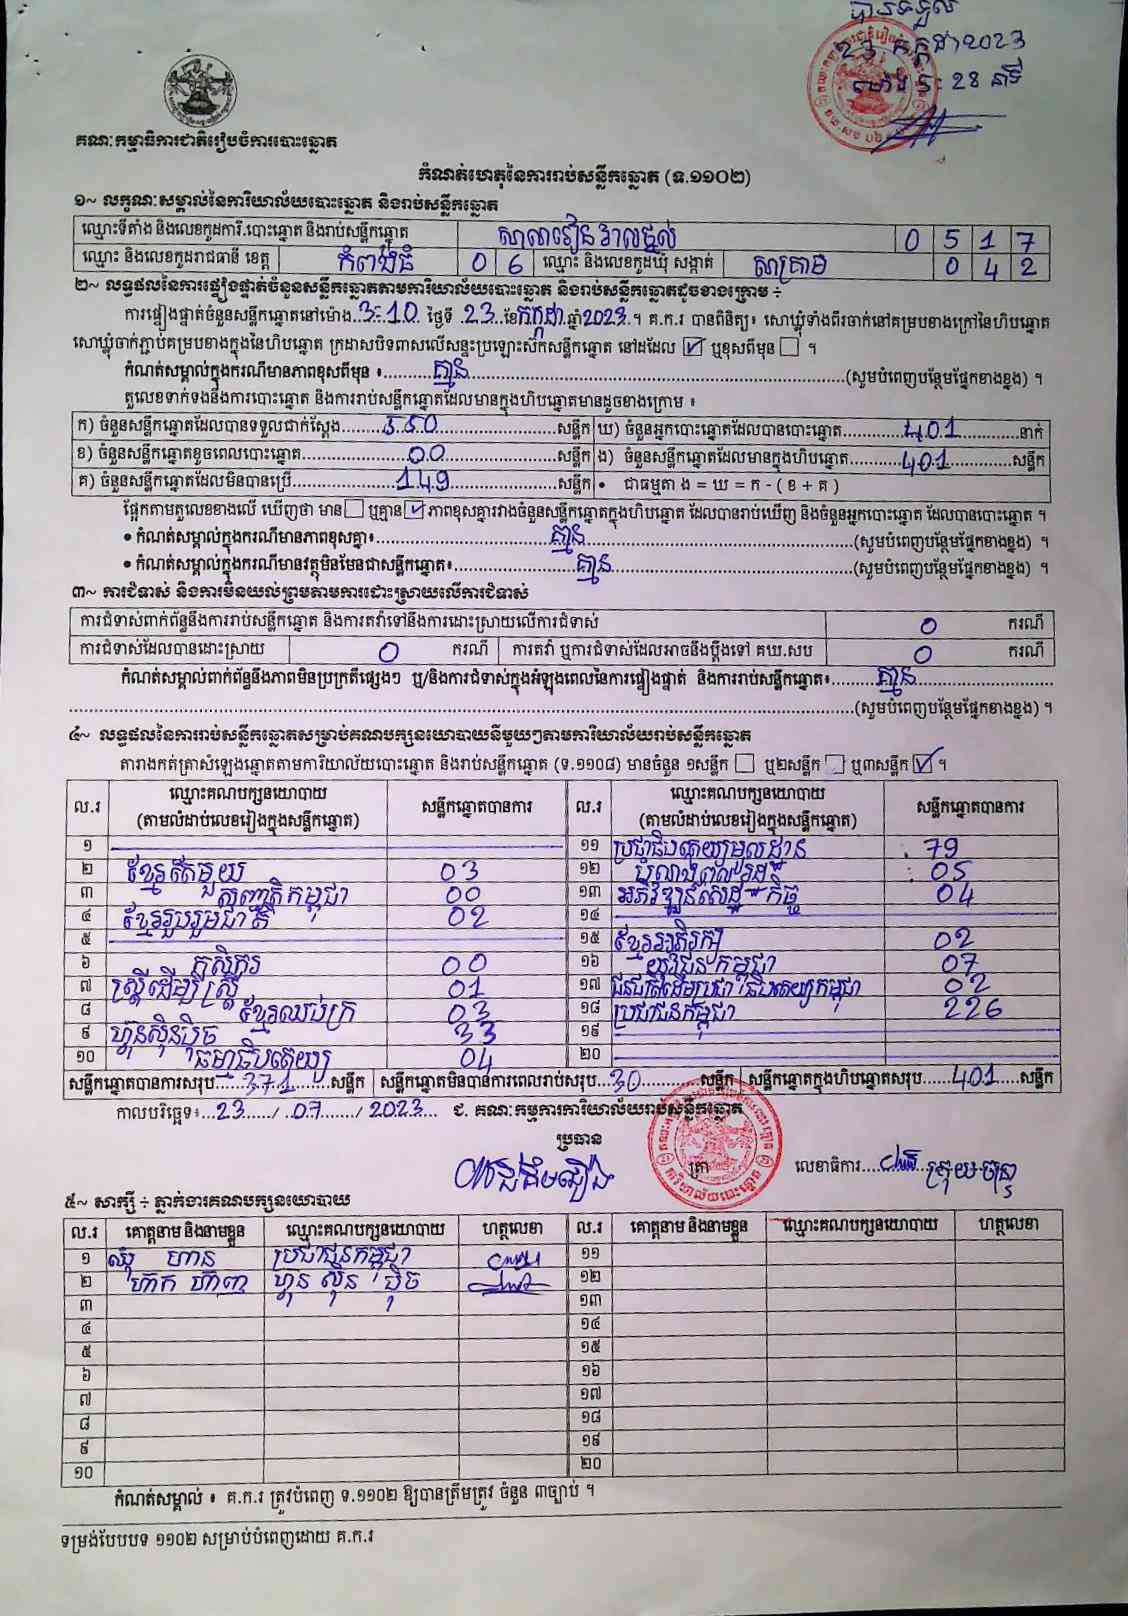 បានទទួល
23 កក្កដា 2023
ម៉ោង 5:28 នាទី
គណៈកម្មាធិការជាតិរៀបចំការបោះឆ្នោត
កំណត់ហេតុនៃការរាប់សន្លឹកឆ្នោត (ទ.១១០២)
១~ លក្ខណៈសម្គាល់នៃការិយាល័យបោះឆ្នោត និងរាប់សន្លឹកឆ្នោត
ឈ្មោះទីតាំង និងលេខកូដការិ.បោះឆ្នោត និងរាប់សន្លឹកឆ្នោត សាលារៀន 0 5 1 7
ឈ្មោះ និងលេខកូដរាជធានី ខេត្ត កំពង់ធំ 0 6 ឈ្មោះ និងលេខកូដឃុំ សង្កាត់ សាគ្រាម 0 4 2
២~ លទ្ធផលនៃការផ្ទៀងផ្ទាត់ចំនួនសន្លឹកឆ្នោតតាមការិយាល័យបោះឆ្នោត និងរាប់សន្លឹកឆ្នោតដូចខាងក្រោម ÷
ការផ្ទៀងផ្ទាត់ចំនួនសន្លឹកឆ្នោតនៅម៉ោង 3:10 ថ្ងៃទី 23 ខែ កក្កដា ឆ្នាំ 2023 ។ គ.ក.រ បានពិនិត្យ៖ សោឃ្លុំទាំងពីរចាក់នៅគម្របខាងក្រៅនៃហិបឆ្នោត
សោឃ្លុំចាក់ភ្ជាប់គម្របខាងក្នុងនៃហិបឆ្នោត ក្រដាសបិទពាសលើសន្ទះប្រឡោះស៊កសន្លឹកឆ្នោត នៅដដែល ☑ ឬខុសពីមុន ☐ ។
កំណត់សម្គាល់ក្នុងករណីមានភាពខុសពីមុន ៖ គ្មាន (សូមបំពេញបន្ថែមផ្នែកខាងខ្នង) ។
តួលេខទាក់ទងនឹងការបោះឆ្នោត និងការរាប់សន្លឹកឆ្នោតដែលមានក្នុងហិបឆ្នោតមានដូចខាងក្រោម ៖
ក) ចំនួនសន្លឹកឆ្នោតដែលបានទទួលជាក់ស្តែង 550 សន្លឹក ឃ) ចំនួនអ្នកបោះឆ្នោតដែលបានបោះឆ្នោត 401 នាក់
ខ) ចំនួនសន្លឹកឆ្នោតខូចពេលបោះឆ្នោត 00 សន្លឹក ង) ចំនួនសន្លឹកឆ្នោតដែលមានក្នុងហិបឆ្នោត 401 សន្លឹក
គ) ចំនួនសន្លឹកឆ្នោតដែលមិនបានប្រើ 149 សន្លឹក • ជាធម្មតា ង = ឃ = ក - ( ខ + គ )
ផ្អែកតាមតួលេខខាងលើ ឃើញថា មាន ☐ ឬគ្មាន ☑ ភាពខុសគ្នារវាងចំនួនសន្លឹកឆ្នោតក្នុងហិបឆ្នោត ដែលបានរាប់ឃើញ និងចំនួនអ្នកបោះឆ្នោត ដែលបានបោះឆ្នោត ។
• កំណត់សម្គាល់ក្នុងករណីមានភាពខុសគ្នា៖ គ្មាន (សូមបំពេញបន្ថែមផ្នែកខាងខ្នង) ។
• កំណត់សម្គាល់ក្នុងករណីមានវត្ថុមិនមែនជាសន្លឹកឆ្នោត៖ គ្មាន (សូមបំពេញបន្ថែមផ្នែកខាងខ្នង) ។
៣~ ការជំទាស់ និងការមិនយល់ព្រមតាមការដោះស្រាយលើការជំទាស់
ការជំទាស់ពាក់ព័ន្ធនឹងការរាប់សន្លឹកឆ្នោត និងការតវ៉ាទៅនឹងការដោះស្រាយលើការជំទាស់ 0 ករណី
ការជំទាស់ដែលបានដោះស្រាយ 0 ករណី ការតវ៉ា ឬការជំទាស់ដែលអាចនឹងប្តឹងទៅ គឃ.សប 0 ករណី
កំណត់សម្គាល់ពាក់ព័ន្ធនឹងភាពមិនប្រក្រតីផ្សេងៗ ឬ/និងការជំទាស់ក្នុងអំឡុងពេលនៃការផ្ទៀងផ្ទាត់ និងការរាប់សន្លឹកឆ្នោត៖ គ្មាន
(សូមបំពេញបន្ថែមផ្នែកខាងខ្នង) ។
៤~ លទ្ធផលនៃការរាប់សន្លឹកឆ្នោតសម្រាប់គណបក្សនយោបាយនីមួយៗតាមការិយាល័យរាប់សន្លឹកឆ្នោត
តារាងកត់ត្រាសំឡេងឆ្នោតតាមការិយាល័យបោះឆ្នោត និងរាប់សន្លឹកឆ្នោត (ទ.១១០៨) មានចំនួន ១សន្លឹក ☐ ឬ២សន្លឹក ☐ ឬ៣សន្លឹក ☑ ។
ល.រ ឈ្មោះគណបក្សនយោបាយ (តាមលំដាប់លេខរៀងក្នុងសន្លឹកឆ្នោត) សន្លឹកឆ្នោតបានការ ល.រ ឈ្មោះគណបក្សនយោបាយ (តាមលំដាប់លេខរៀងក្នុងសន្លឹកឆ្នោត) សន្លឹកឆ្នោតបានការ
១ ១១ ប្រជាធិបតេយ្យមូលដ្ឋាន 79
២ ខ្មែរតែមួយ 03 ១២ 05
៣ សញ្ជាតិកម្ពុជា 00 ១៣ អភិវឌ្ឍន៍សេដ្ឋកិច្ច 04
៤ ខ្មែររួបរួមជាតិ 02 ១៤
៥ ១៥ ខ្មែរអភិរក្ស 02
៦ កសិករ 00 ១៦ យុវជនកម្ពុជា 07
៧ ស្ត្រីដើម្បីស្ត្រី 01 ១៧ ជនជាតិដើមប្រជាធិបតេយ្យកម្ពុជា 02
៨ ខ្មែរឈប់ក្រ 03 ១៨ ប្រជាជនកម្ពុជា 226
៩ ហ៊្វុនស៊ិនប៉ិច 33 ១៩
១០ ធម្មាធិបតេយ្យ 04 ២០
សន្លឹកឆ្នោតបានការសរុប 371 សន្លឹក សន្លឹកឆ្នោតមិនបានការពេលរាប់សរុប 30 សន្លឹក សន្លឹកឆ្នោតក្នុងហិបឆ្នោតសរុប 401 សន្លឹក
កាលបរិច្ឆេទ៖ 23 / 07 / 2023 ជ. គណៈកម្មការការិយាល័យរាប់សន្លឹកឆ្នោត
ប្រធាន ត្រា លេខាធិការ
៥~ សាក្សី ÷ ភ្នាក់ងារគណបក្សនយោបាយ
ល.រ គោត្តនាម និងនាមខ្លួន ឈ្មោះគណបក្សនយោបាយ ហត្ថលេខា ល.រ គោត្តនាម និងនាមខ្លួន ឈ្មោះគណបក្សនយោបាយ ហត្ថលេខា
១ ហាន ប្រជាជនកម្ពុជា ១១
២ ហ៊្វុន ស៊ិន ប៉ិច ១២
៣ ១៣
៤ ១៤
៥ ១៥
៦ ១៦
៧ ១៧
៨ ១៨
៩ ១៩
១០ ២០
កំណត់សម្គាល់ ៖ គ.ក.រ ត្រូវបំពេញ ទ.១១០២ ឱ្យបានត្រឹមត្រូវ ចំនួន ៣ច្បាប់ ។
ទម្រង់បែបបទ ១១០២ សម្រាប់បំពេញដោយ គ.ក.រ